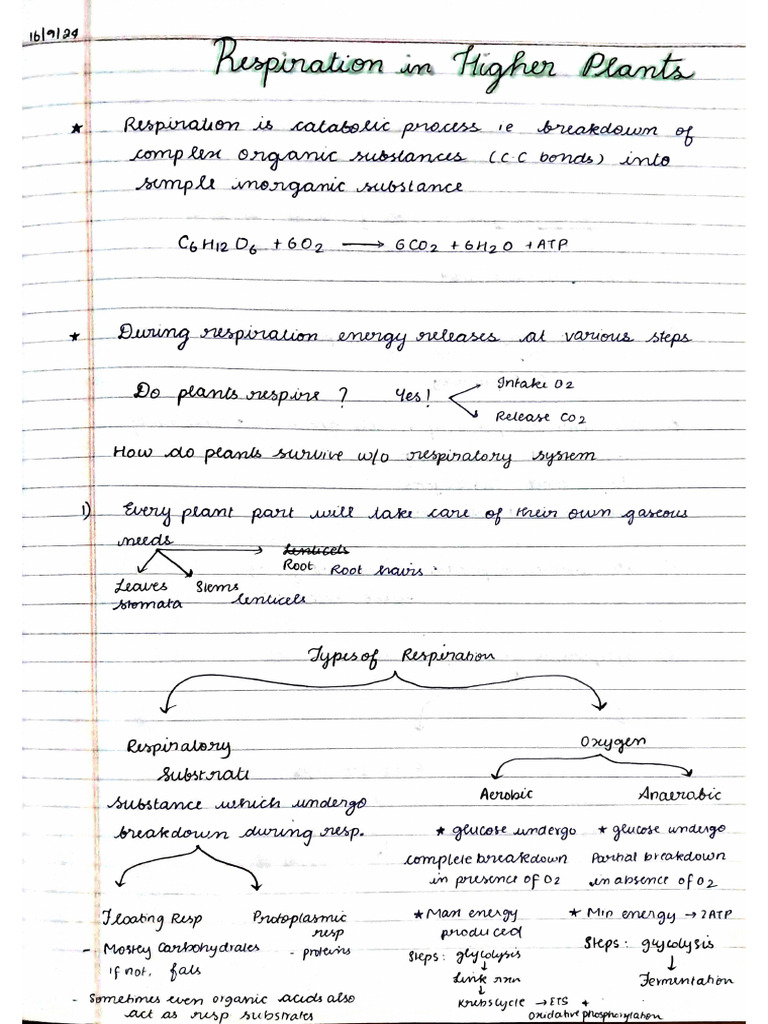 16/9/24
Respiration in Higher Plants
★ Respiration is catabolic process ie breakdown of
complex organic substances (C.C bonds) into
simple inorganic substance
C6H12O6 + 6O2 → 6CO2 + 6H2O + ATP
★ During respiration energy releases at various steps
Do plants respire? Yes! Intake O2
Release CO2
How do plants survive w/o respiratory system
1) Every plant part will take care of their own gaseous
needs → Lenticels
Root Root hairs
Leaves Stems
stomata lenticels
Types of Respiration
Respiratory
Substrate
substance which undergo
breakdown during resp.
Floating Resp
- Mostly Carbohydrates
if not, fats
Protoplasmic
resp
- proteins
- Sometimes even organic acids also
act as resp substrates
Oxygen
Aerobic
★ glucose undergo
complete breakdown
in presence of O2
★ Max energy
produced
Steps: glycolysis
↓
Link rxn
↓
Krebs cycle → ETS +
oxidative phosphorylation
Anaerabic
★ glucose undergo
Partial breakdown
in absence of O2
★ Min energy → 2ATP
Steps: glycolysis
↓
Fermentation